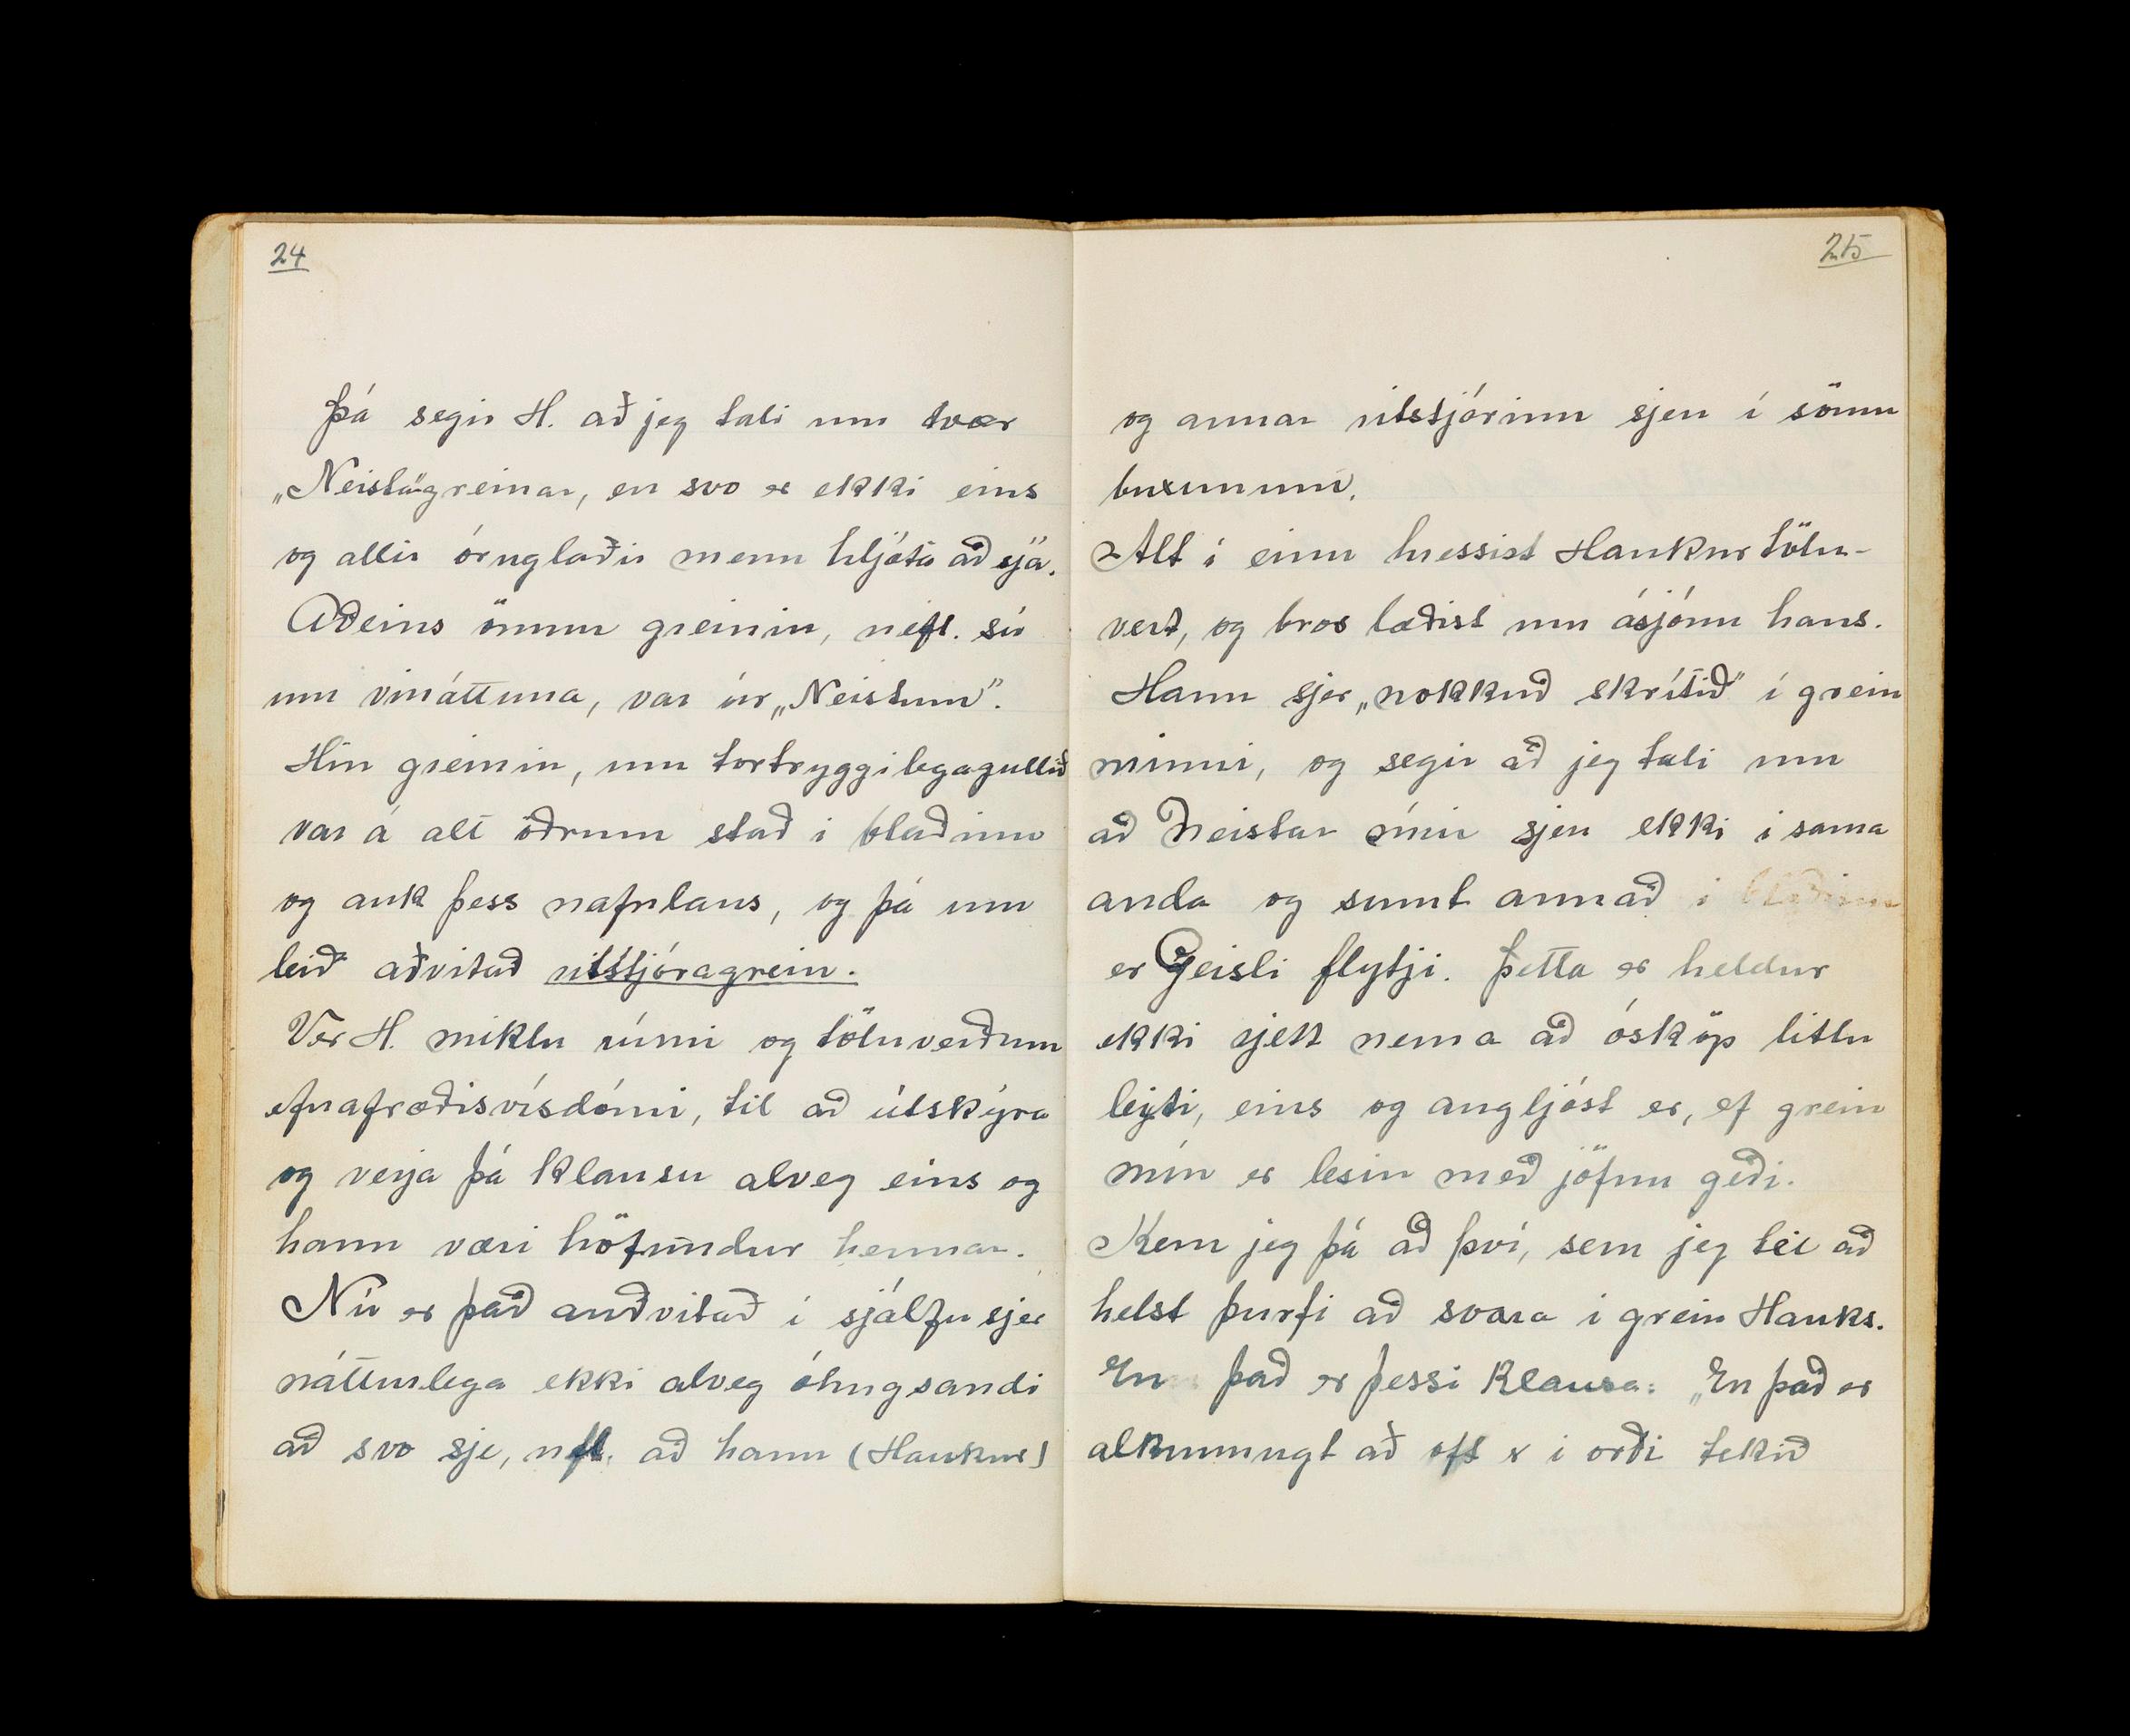 24
Þá segir H. að jeg tali um tvær
„Neista"greinar, en svo er ekki eins
og allir óruglaðir menn hljóta að sjá.
Aðeins önnur greinin, nefl. sú
um vináttuna, var úr „Neistum".
Hin greinin, um tortryggilegagullið
var á alt öðrum stað i blaðinu
og auk þess nafnlaus, og þá um
leið aðvitað ritstjóragrein.
Ver H. miklu rúmi og töluverðum
efnafræðisvísdómi, til að útskýra
og verja þá klausu alveg eins og
hann væri höfundur hennar.
Nú er það auðvitað i sjálfu sjer
náttúrlega ekki alveg óhugsandi
að svo sje, nfl. að hann (Haukur)
25
og annar ritstjórinn sjeu í sömu
buxunum.
Alt i einu hressist Haukur tölu-
vert, og bros læðist um ásjónu hans.
Hann sjer „nokkuð skrítið" í grein
minni, og segir að jeg tali um
að Neistar mínir sjeu ekki i sama
anda og sumt annað i blaðinu
er Geisli flytji. Þetta er heldur
ekki rjett nema að ósköp litlu
leyti, eins og augljóst er, ef grein
mín er lesin með jöfnu geði.
Kem jeg þá að því, sem jeg tel að
helst þurfi að svara i grein Hauks.
En það er þessi klausa: „En það er
alkunnugt að oft er i orði tekið